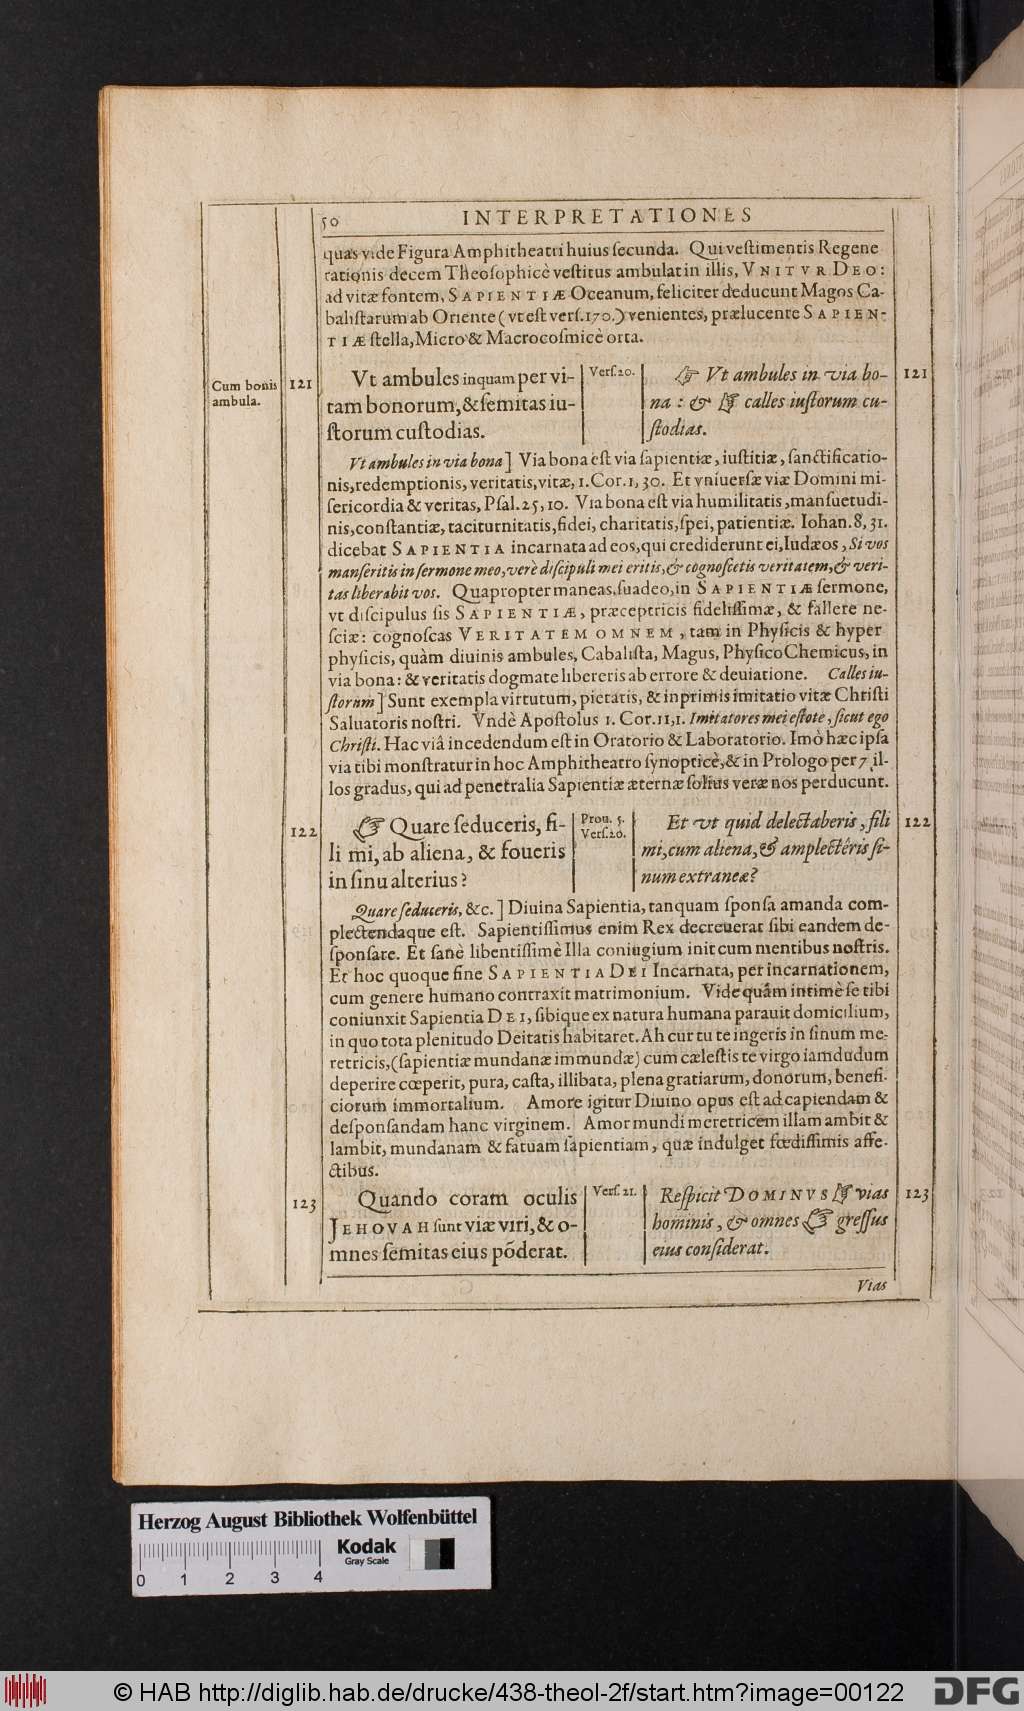 50 INTERPRETATIONES
quas vide Figura Amphitheatri huius ſecunda. Qui veſtimentis Regene
rationis decem Theoſophicè veſtitus ambulat in illis, VNITVR DEO:
ad vitæ fontem, SAPIENTIÆ Oceanum, feliciter deducunt Magos Ca-
baliſtarum ab Oriente (vt eſt verſ. 170.) venientes, prælucente SAPIEN-
TIÆ ſtella, Micro & Macrocoſmicè orta.
Cum bonis
ambula.
121
Vt ambules inquam per vi-
tam bonorum, & ſemitas iu-
ſtorum cuſtodias.
Verſ. 20.
☞ Vt ambules in via bo-
na: & ☞ calles iuſtorum cu-
ſtodias.
121
Vt ambules in via bona] Via bona eſt via ſapientiæ, iuſtitiæ, ſanctificatio-
nis, redemptionis, veritatis, vitæ, 1. Cor. 1, 30. Et vniuerſæ viæ Domini mi-
ſericordia & veritas, Pſal. 25, 10. Via bona eſt via humilitatis, manſuetudi-
nis, conſtantiæ, taciturnitatis, fidei, charitatis, ſpei, patientiæ. Iohan. 8, 31.
dicebat SAPIENTIA incarnata ad eos, qui crediderunt ei, Iudæos, Si vos
manſeritis in ſermone meo, verè diſcipuli mei eritis, & cognoſcetis veritatem, & veri-
tas liberabit vos. Quapropter maneas, ſuadeo, in SAPIENTIÆ ſermone,
vt diſcipulus ſis SAPIENTIÆ, præceptricis fideliſſimæ, & fallere ne-
ſciæ: cognoſcas VERITATEM OMNEM, tam in Phyſicis & hyper
phyſicis, quàm diuinis ambules, Cabaliſta, Magus, PhyſicoChemicus, in
via bona: & veritatis dogmate libereris ab errore & deuiatione. Calles iu-
ſtorum] Sunt exempla virtutum, pietatis, & inprimis imitatio vitæ Chriſti
Saluatoris noſtri. Vndè Apoſtolus 1. Cor. 11, 1. Imitatores mei eſtote, ſicut ego
Chriſti. Hac viâ incedendum eſt in Oratorio & Laboratorio. Imò hæc ipſa
via tibi monſtratur in hoc Amphitheatro ſynopticè, & in Prologo per 7 il-
los gradus, qui ad penetralia Sapientiæ æternæ ſolius veræ nos perducunt.
122
☞ Quare ſeduceris, fi-
li mi, ab aliena, & foueris
in ſinu alterius?
Prou. 5.
Verſ. 20.
Et vt quid delectaberis, fili
mi, cum aliena, & amplectéris ſi-
num extraneæ?
122
Quare ſeduceris, &c.] Diuina Sapientia, tanquam ſponſa amanda com-
plectendaque eſt. Sapientiſſimus enim Rex decreuerat ſibi eandem de-
ſponſare. Et ſanè libentiſſimè Illa coniugium init cum mentibus noſtris.
Et hoc quoque fine SAPIENTIA DEI Incarnata, per incarnationem,
cum genere humano contraxit matrimonium. Vide quâm intimè ſe tibi
coniunxit Sapientia DEI, ſibique ex natura humana parauit domicilium,
in quo tota plenitudo Deitatis habitaret. Ah cur tu te ingeris in ſinum me-
retricis, (ſapientiæ mundanæ immundæ) cum cæleſtis te virgo iamdudum
deperire cœperit, pura, caſta, illibata, plena gratiarum, donorum, benefi-
ciorum immortalium. Amore igitur Diuino opus eſt ad capiendam &
deſponſandam hanc virginem. Amor mundi meretricem illam ambit &
lambit, mundanam & fatuam ſapientiam, quæ indulget fœdiſſimis affe-
ctibus.
123
Quando coram oculis
JEHOVAH ſunt viæ viri, & o-
mnes ſemitas eius põderat.
Verſ. 21.
Reſpicit DOMINVS ☞ vias
hominis, & omnes ☞ greſſus
eius conſiderat.
123
Vias
Herzog August Bibliothek Wolfenbüttel
Kodak
Gray Scale
0 1 2 3 4
© HAB http://diglib.hab.de/drucke/438-theol-2f/start.htm?image=00122
DFG